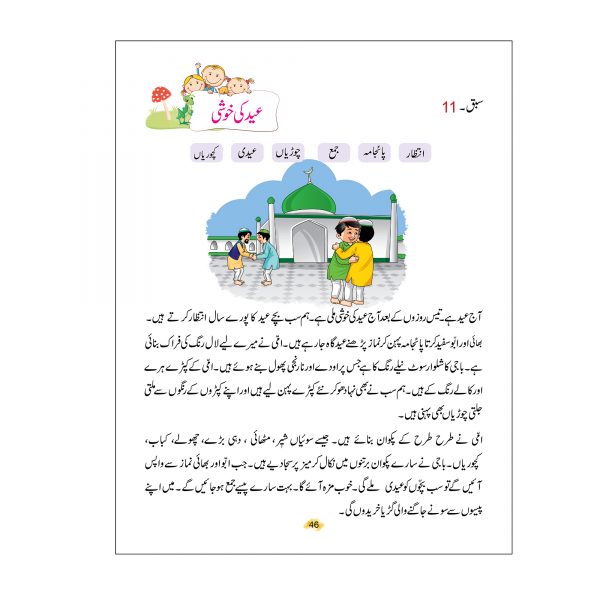 سبق۔ 11
عید کی خوشی
انتظار پائجامہ جمع چوڑیاں عیدی کچوریاں
آج عید ہے۔ تیس روزوں کے بعد آج عید کی خوشی ملی ہے۔ ہم سب بچے عید کا پورے سال انتظار کرتے ہیں۔
بھائی اور ابو سفید کرتا پائجامہ پہن کر نماز پڑھنے عید گاہ جا رہے ہیں۔ امّی نے میرے لیے لال رنگ کی فراک بنائی
ہے۔ باجی کا شلوار سوٹ نیلے رنگ کا ہے جس پر اودے اور نارنجی پھول بنے ہوئے ہیں۔ امّی کے کپڑے ہرے
اور کالے رنگ کے ہیں۔ ہم سب نے بھی نہا دھو کر نئے کپڑے پہن لیے ہیں اور اپنے کپڑوں کے رنگوں سے ملتی
جلتی چوڑیاں بھی پہنی ہیں۔
امّی نے طرح طرح کے پکوان بنائے ہیں۔ جیسے سوئیاں شیر، مٹھائی، دہی بڑے، چھولے، کباب،
کچوریاں۔ باجی نے سارے پکوان برتنوں میں نکال کر میز پر سجا دیے ہیں۔ جب ابّو اور بھائی نماز سے واپس
آئیں گے تو سب بچّوں کو عیدی ملے گی۔ خوب مزہ آئے گا۔ بہت سارے پیسے جمع ہو جائیں گے۔ میں اپنے
پیسوں سے سونے جاگنے والی گڑیا خریدوں گی۔
46